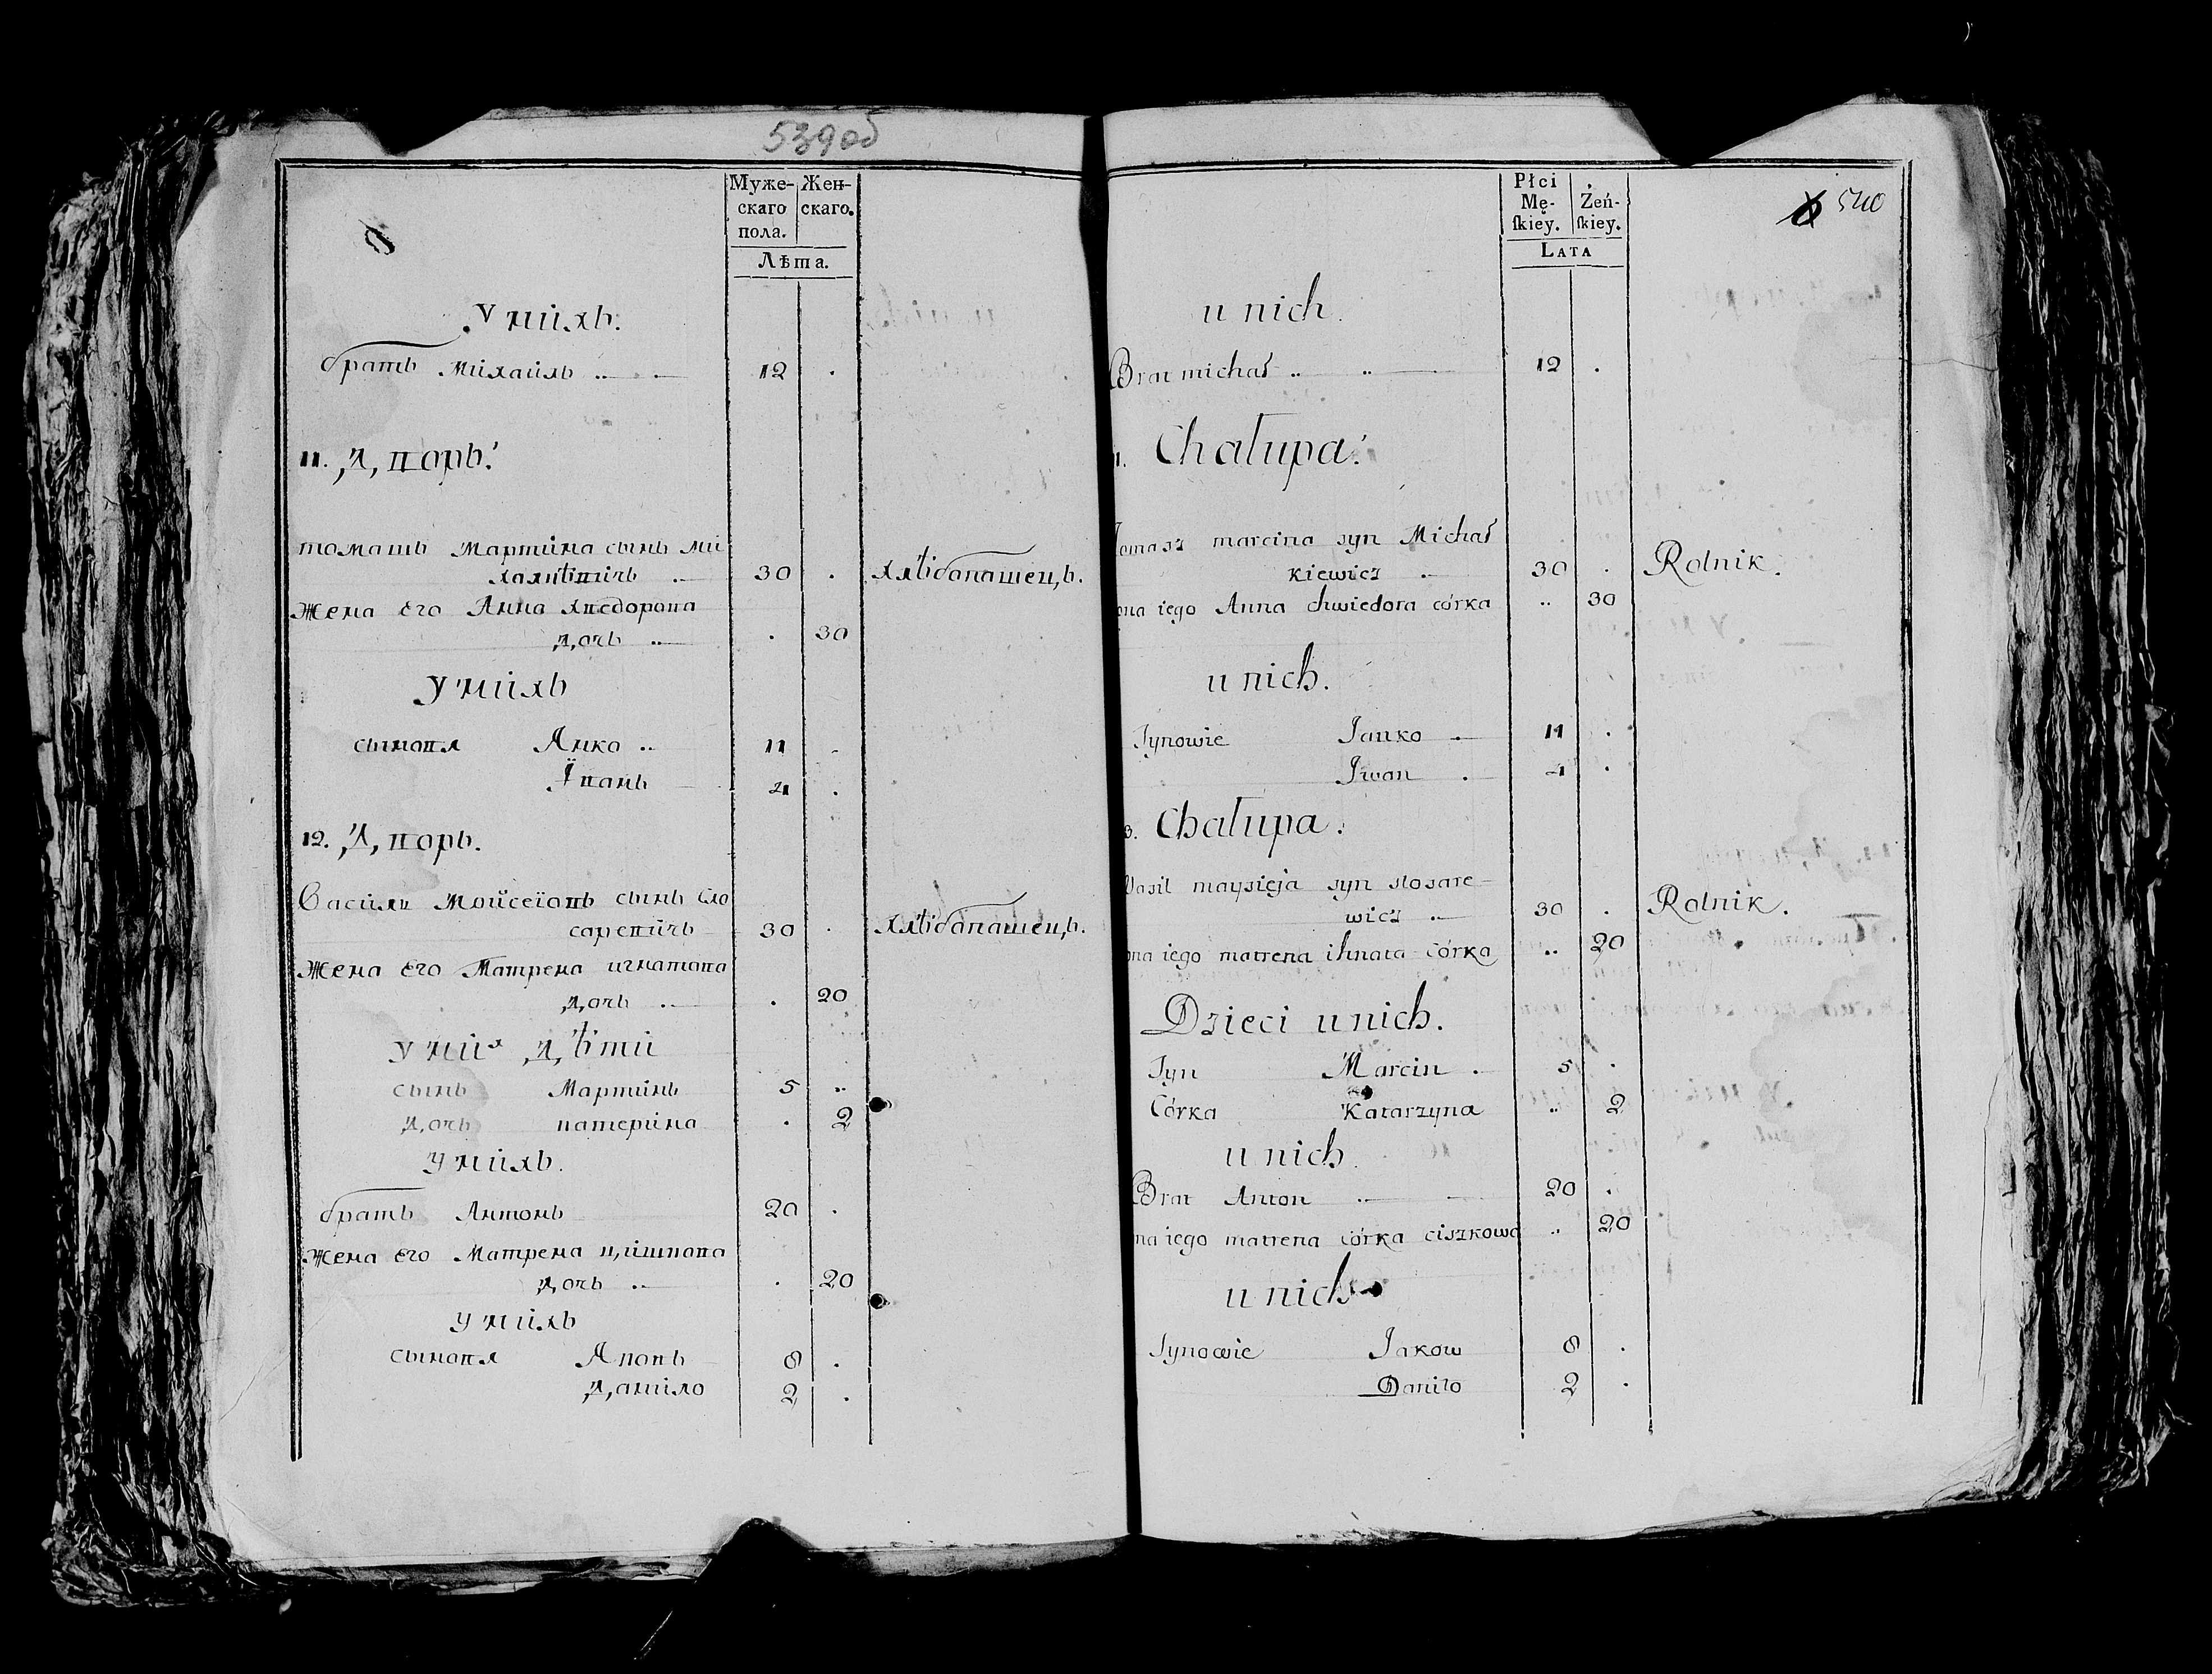 539об
Муже-
скаго
пола.
Жен-
скаго.
Лѣта.
У нихъ.
братъ Михаилъ 12
11. Дворъ.
томашъ Мартина сынъ Ми
халкѣвичъ 30 хлѣбопашецъ.
Жена Его Анна хведорова
дочь 30
У нихъ
сыновя Янко 11
Їванъ 4
12. Дворъ.
Василь Мойсеiовъ сынъ Сло
саревичъ 30 хлѣбопашецъ.
Жена Его Матрена игнатова
дочь 20
У них дѣти
сынъ Мартинъ 5
дочь катерина 2
У нихъ.
братъ Антонъ 20
Жена Его Матрена цишкова
дочь 20
У нихъ
сыновя Яковъ 8
Данило 2
Płci
Mę-
ſkiey.
Żeń-
ſkiey.
LATA
540
u nich.
Brat michał 12
1. Chałupa.
Tomasz marcina syn Michał
kiewicz 30 Rolnik.
ona iego Anna chwiedora córka 30
u nich.
Synowie Janko 11
Jwan 4
Chałupa.
Wasil maysieja syn slosare-
wicz 30 Rolnik.
ona iego matrena ihnata córka 20
Dzieci u nich.
Syn Marcin 5
Córka Katarzyna 2
u nich
Brat Anton 20
na iego matrena córka ciszkowa 20
u nich
Synowie Jakow 8
Daniło 2